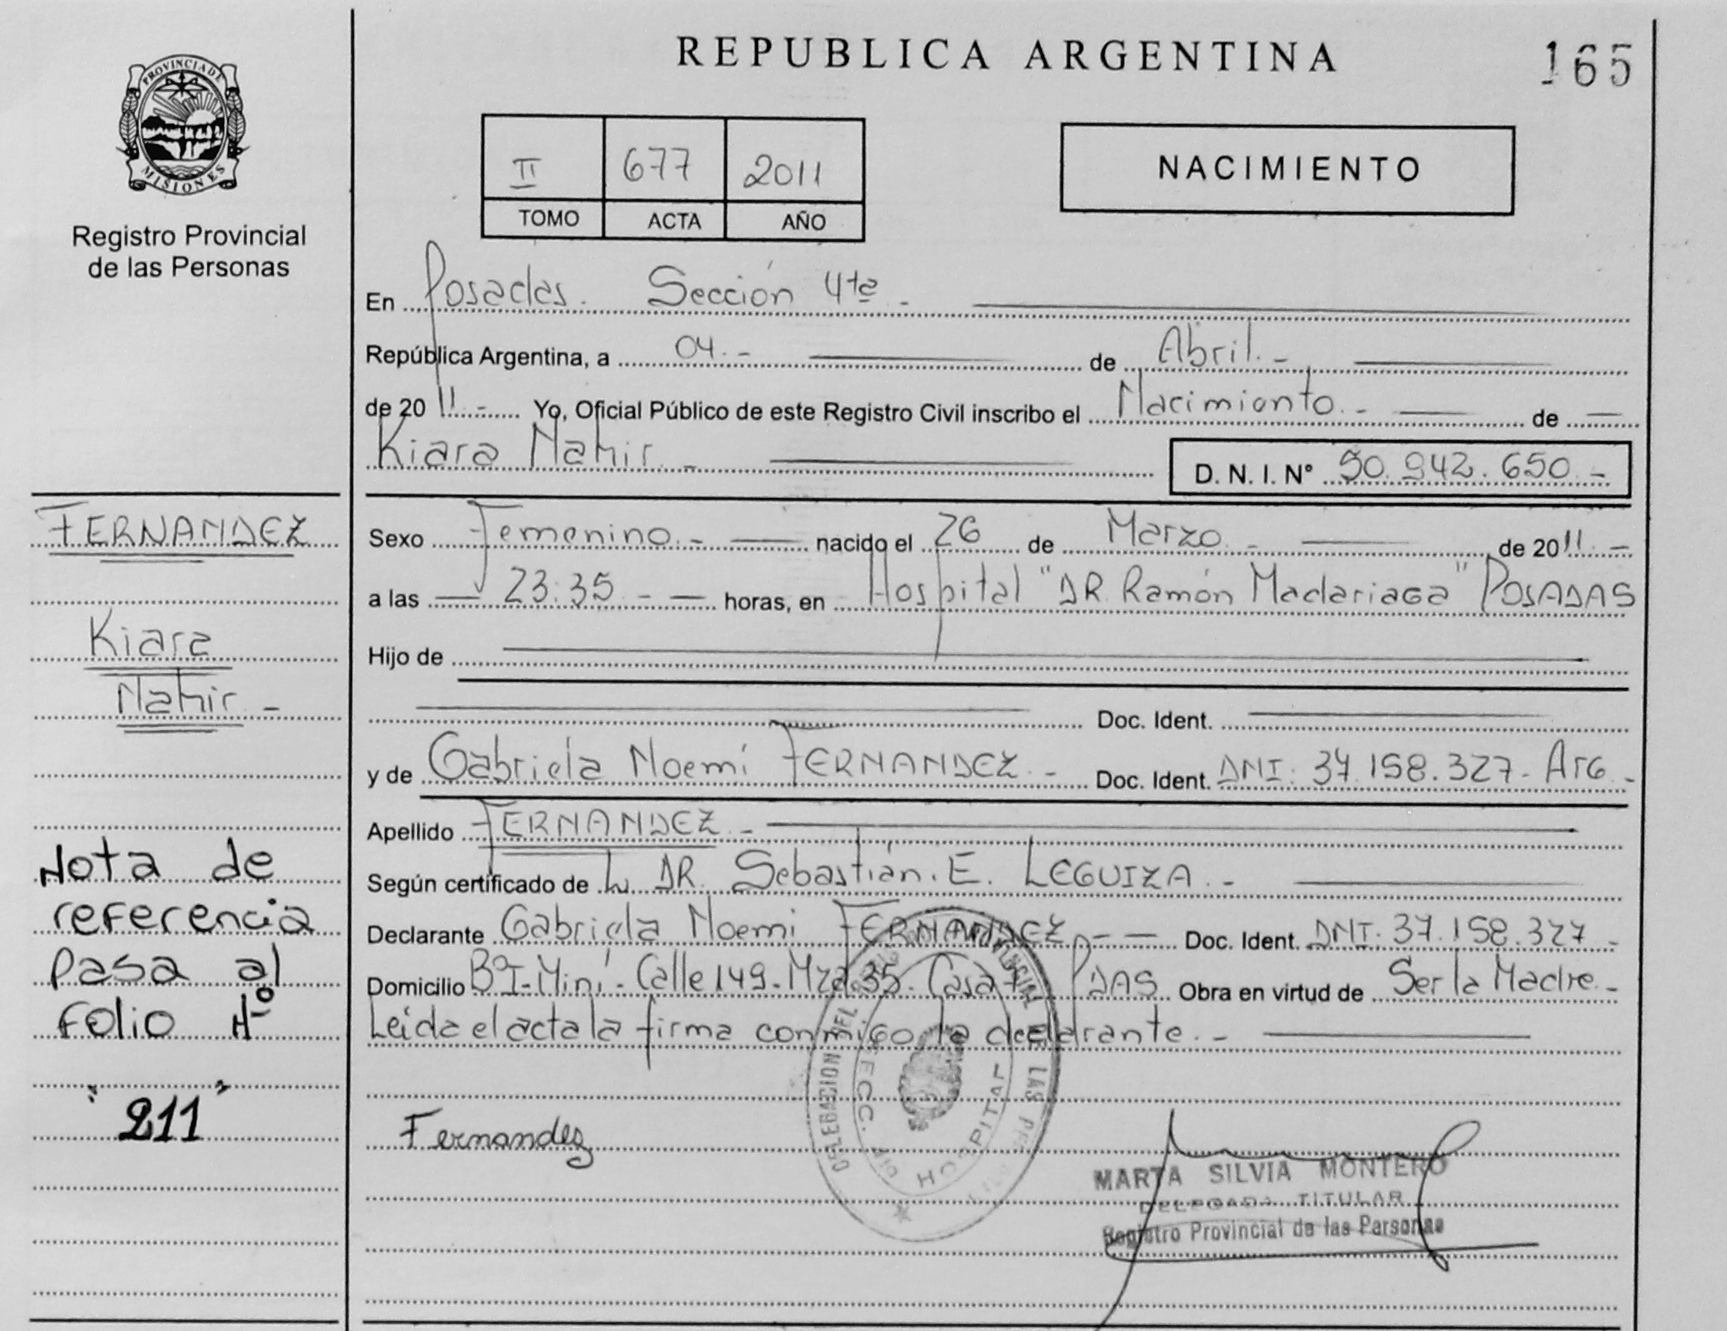 REPUBLICA ARGENTINA
165
PROVINCIA DE
MISIONES
Registro Provincial
de las Personas
II 677 2011
TOMO ACTA AÑO
NACIMIENTO
En Posadas. Sección 4ta -
República Argentina, a 04.- de Abril.-
de 2011.- Yo, Oficial Público de este Registro Civil inscribo el Nacimiento.- de
Kiara Nahir.- D. N. I. Nº 50.942.650.-
FERNANDEZ
Kiara
Nahir.-
Sexo Femenino.- nacido el 26 de Marzo.- de 2011.-
a las 23:35.- horas, en Hospital "DR. Ramón Madariaga" POSADAS
Hijo de
Doc. Ident.
y de Gabriela Noemí FERNANDEZ.- Doc. Ident. DNI: 37.158.327- Arg.-
Apellido FERNANDEZ.-
Según certificado de DR. Sebastián. E. LEGUIZA.-
Declarante Gabriela Noemi FERNANDEZ - - Doc. Ident. DNI. 37.158.327.-
Domicilio Bº I-Miní- Calle 149- Mzd 35- Casa PDAS. Obra en virtud de Ser la Madre.-
Leida el acta la firma conmigo la declarante.-
Nota de
referencia
Pasa al
Folio Nº
"211"
Fernandez
DELEGACION DEL
LAS
SECC. 4ta
HOSPITAL
MARTA SILVIA MONTERO
DELEGADA TITULAR
Registro Provincial de las Personas